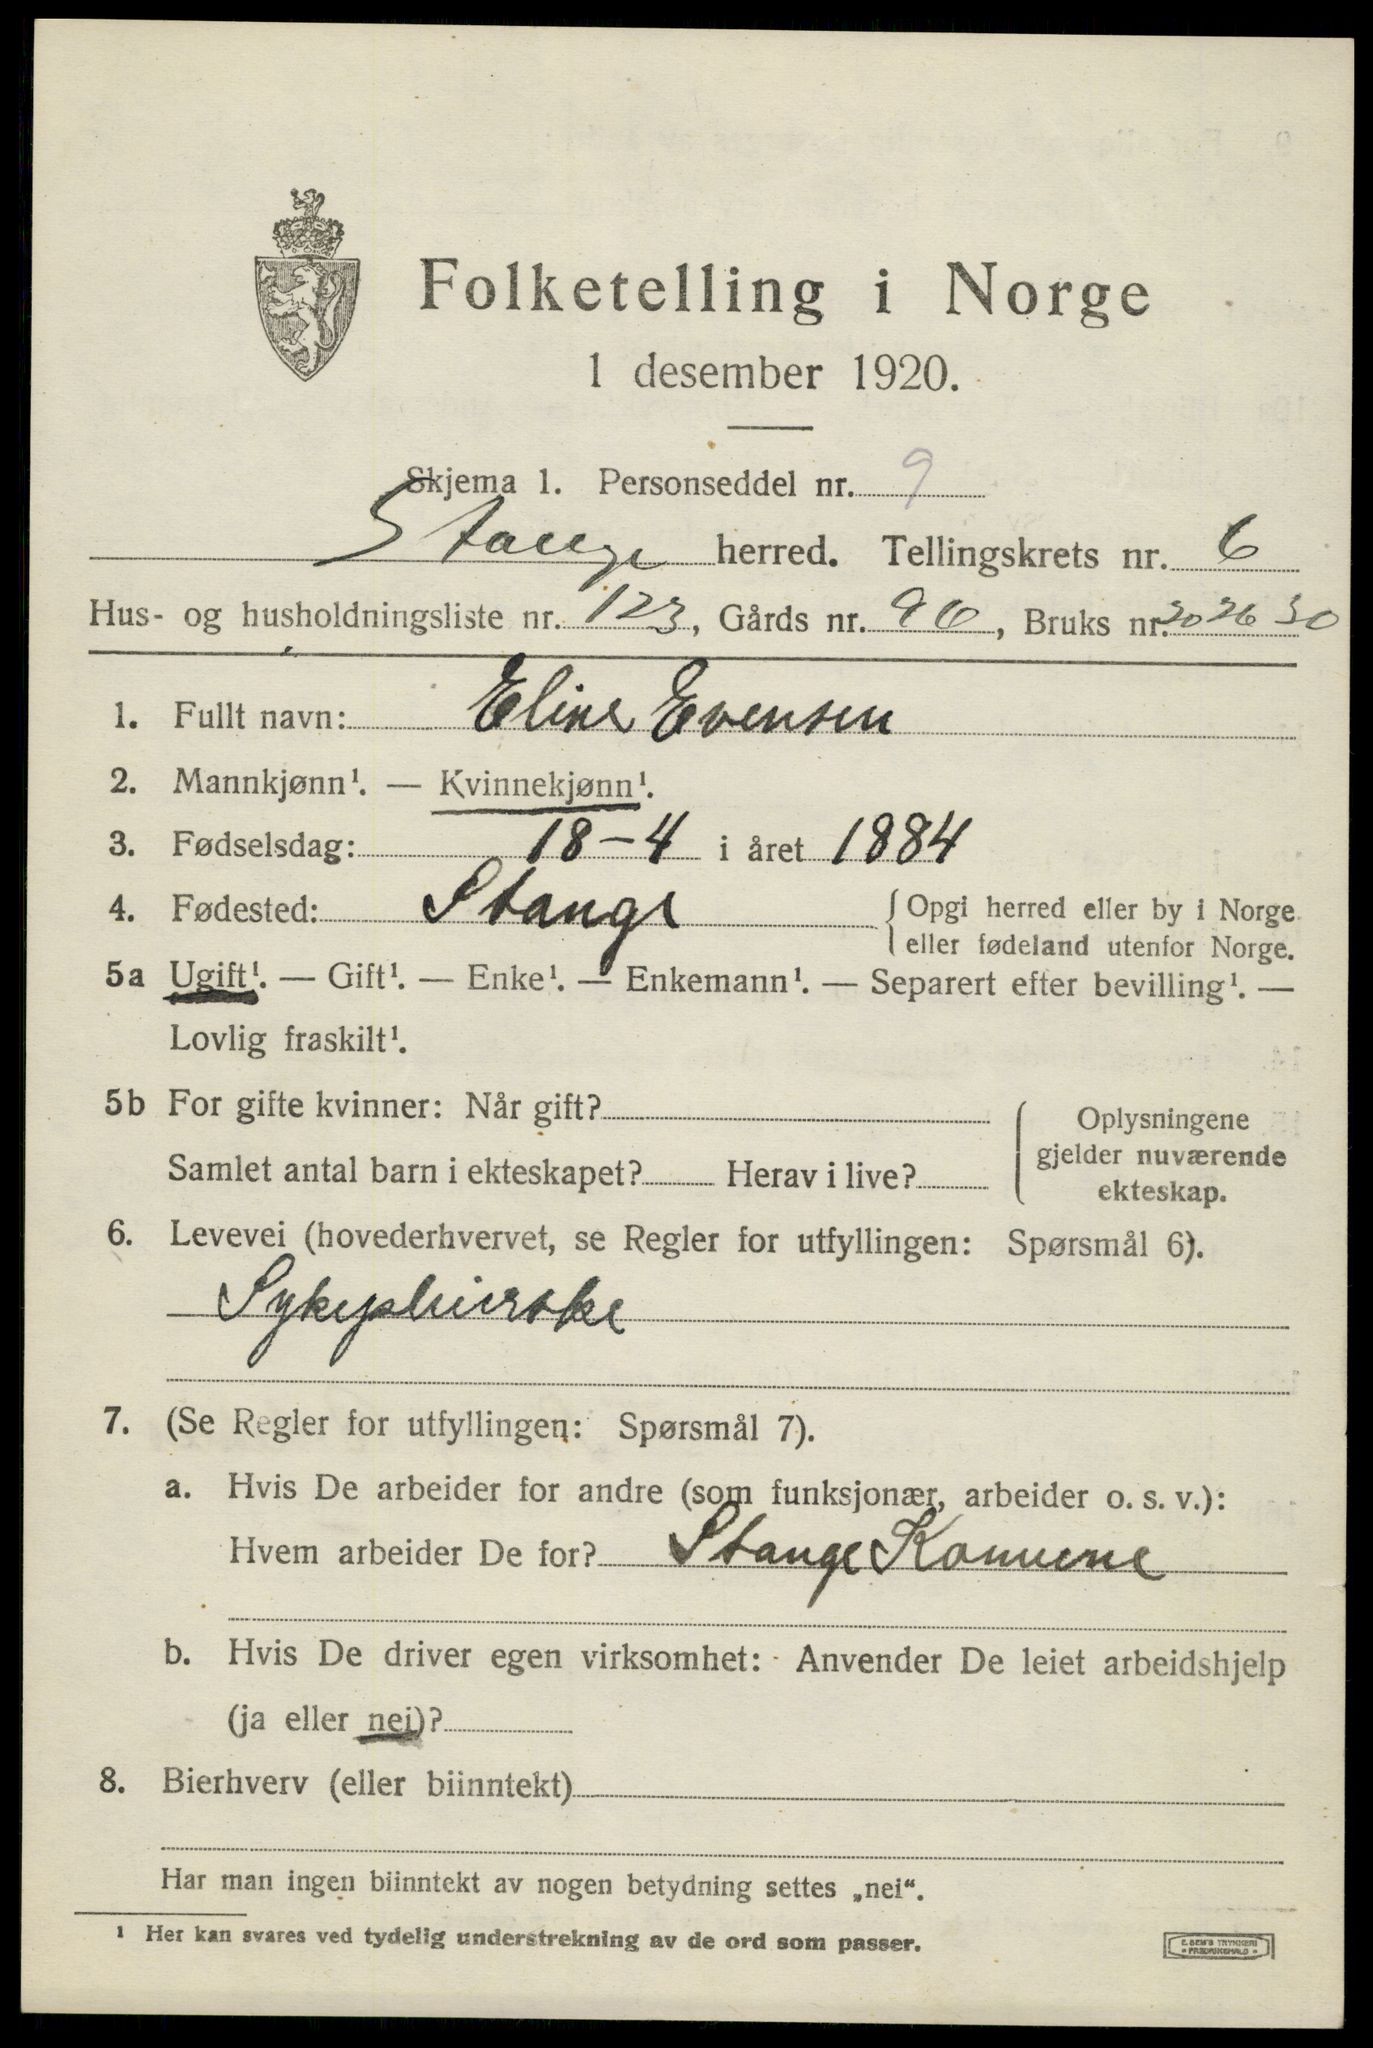 Folketelling i Norge
1 desember 1920.
Skjema 1. Personseddel nr. 9
Stange herred. Tellingskrets nr. 6
Hus- og husholdningsliste nr. 123, Gårds nr. 96, Bruks nr. 20 26 30
1. Fullt navn: Eline Evensen
2. Mannkjønn¹. — Kvinnekjønn¹.
3. Fødselsdag: 18-4 i året 1884
4. Fødested: Stange {Opgi herred eller by i Norge
eller fødeland utenfor Norge.
5a Ugift¹. — Gift¹. — Enke¹. — Enkemann¹. — Separert efter bevilling¹. —
Lovlig fraskilt¹.
5b For gifte kvinner: Når gift?
Samlet antal barn i ekteskapet? Herav i live?
Oplysningene
gjelder nuværende
ekteskap.
6. Levevei (hovederhvervet, se Regler for utfyllingen: Spørsmål 6).
Sykepleierske
7. (Se Regler for utfyllingen: Spørsmål 7).
a. Hvis De arbeider for andre (som funksjonær, arbeider o. s. v.):
Hvem arbeider De for? Stange Komune
b. Hvis De driver egen virksomhet: Anvender De leiet arbeidshjelp
(ja eller nei)?
8. Bierhverv (eller biinntekt)
Har man ingen biinntekt av nogen betydning settes „nei“.
¹ Her kan svares ved tydelig understrekning av de ord som passer.
E. SEM'S TRYKKERI
• FREDRIKSHALD •